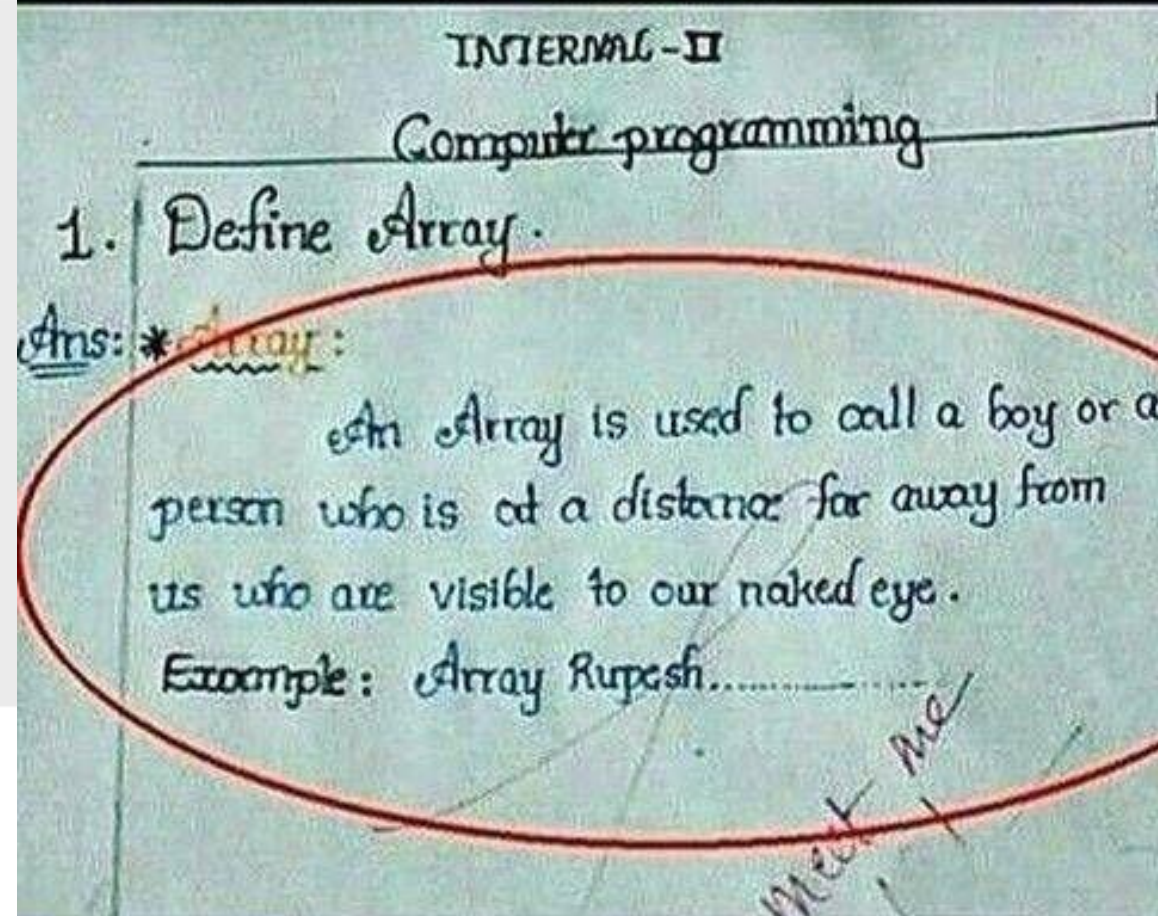 INTERNAL-II
Computer programming
1. Define Array.
Ans: * Array:
An Array is used to call a boy or a
person who is at a distance far away from
us who are visible to our naked eye.
Example: Array Rupesh..................
meet me